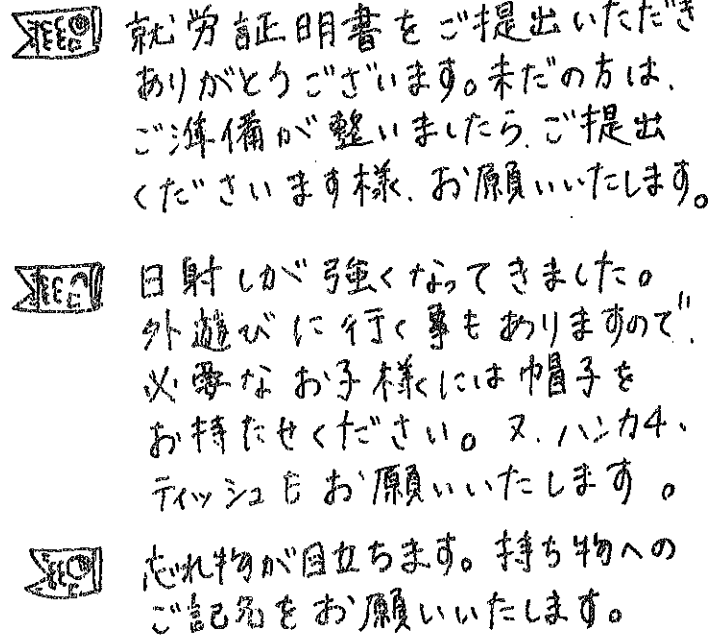 就労証明書をご提出いただき
ありがとうございます。未だの方は、
ご準備が整いましたら、ご提出
くださいます様、お願いいたします。
日射しが強くなってきました。
外遊びに行く事もありますので、
必要なお子様には帽子を
お持たせください。又、ハンカチ、
ティッシュもお願いいたします。
忘れ物が目立ちます。持ち物への
ご記名をお願いいたします。